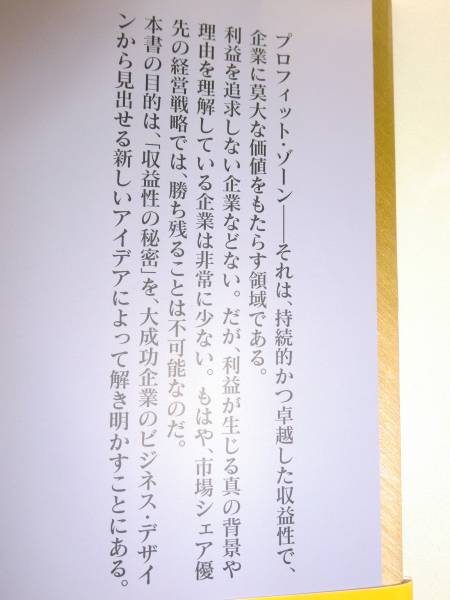 プロフィット・ゾーン──それは、持続的かつ卓越した収益性で、
企業に莫大な価値をもたらす領域である。
利益を追求しない企業などない。だが、利益が生じる真の背景や
理由を理解している企業は非常に少ない。もはや、市場シェア優
先の経営戦略では、勝ち残ることは不可能なのだ。
本書の目的は、「収益性の秘密」を、大成功企業のビジネス・デザイ
ンから見出せる新しいアイデアによって解き明かすことにある。